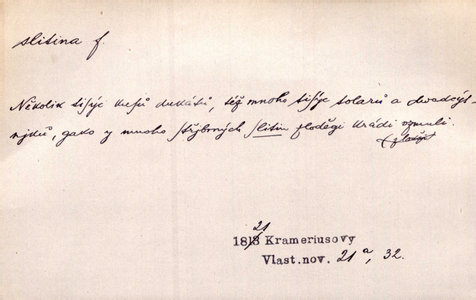 slitina f.
Několik tisýc kusů dukátů, též mnoho tisýc tolarů a dwadcýt-
njků, gako y mnoho střjbrných slitin zloděgi krádj wzauli.
1821 Krameriusovy
Vlast. nov. 21a, 32.